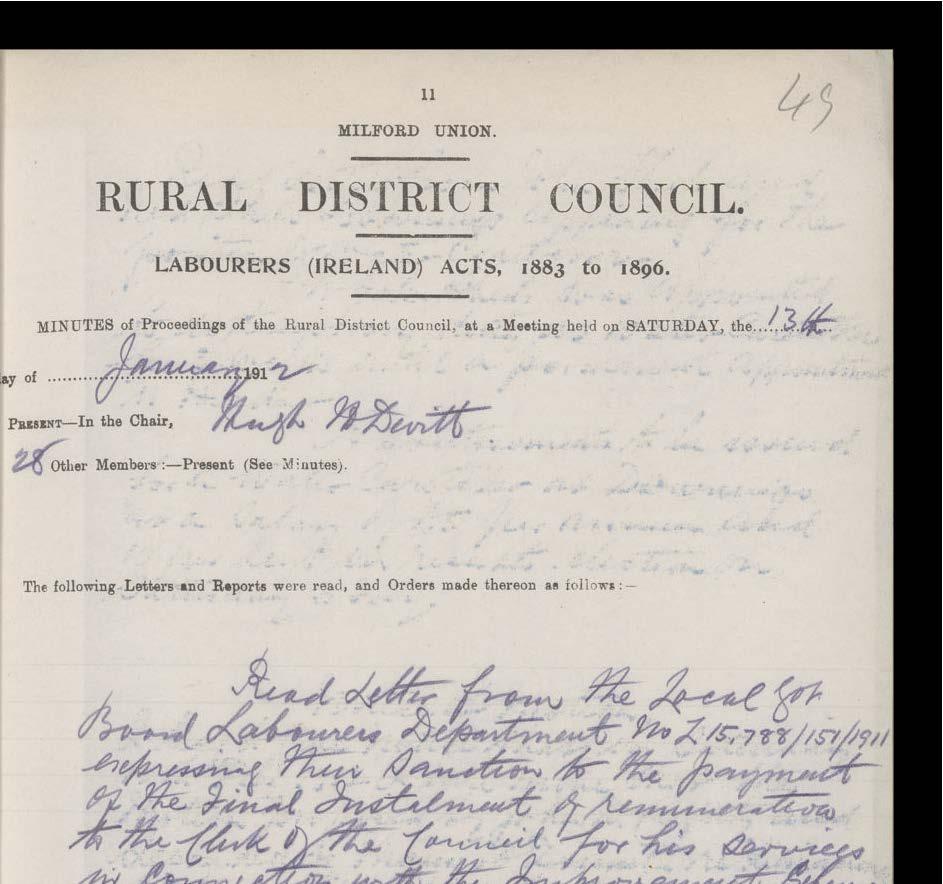 49
11
MILFORD UNION.
RURAL DISTRICT COUNCIL.
LABOURERS (IRELAND) ACTS, 1883 to 1896.
MINUTES of Proceedings of the Rural District Council, at a Meeting held on SATURDAY, the......13th..
ay of ..........January..........1912
PRESENT—In the Chair, Hugh McDevitt
28 Other Members:—Present (See Minutes).
The following Letters and Reports were read, and Orders made thereon as follows:—
Read Letter from the Local Govt
Board Labourers Department No L 15,788/151/1911
expressing their Sanction to the payment
of the Final Instalment of remuneration
to the Clerk of the Council for his services
in connection with the Improvement